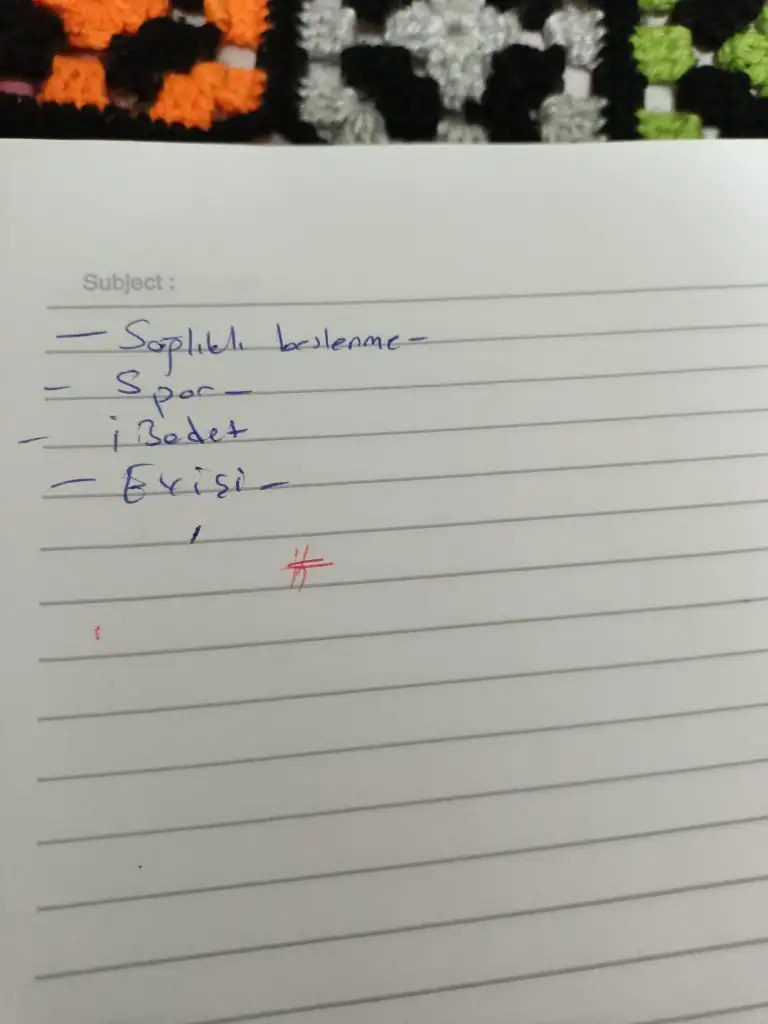 Subject :
— Sağlıklı beslenme —
– Spor —
– İBadet
— Ev işi —
#